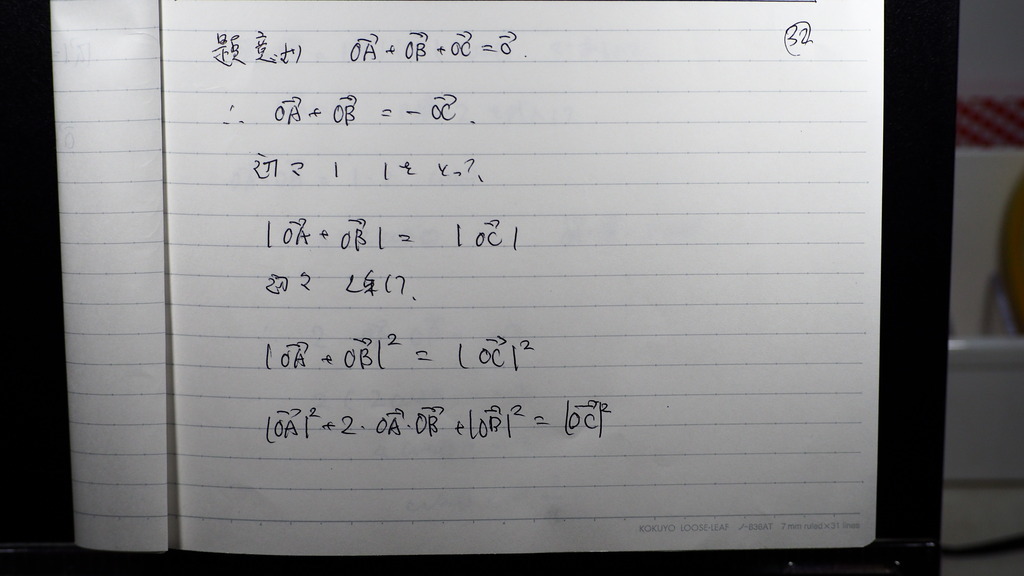 題意より OA→ + OB→ + OC→ = 0→.
㉜
∴ OA→ + OB→ = - OC→.
| |を とって、
|OA→ + OB→| = |OC→|
2乗して、
|OA→ + OB→|² = |OC→|²
|OA→|² + 2・OA→・OB→ + |OB→|² = |OC→|²
KOKUYO LOOSE-LEAF ノ-836AT 7 mm ruled×31 lines